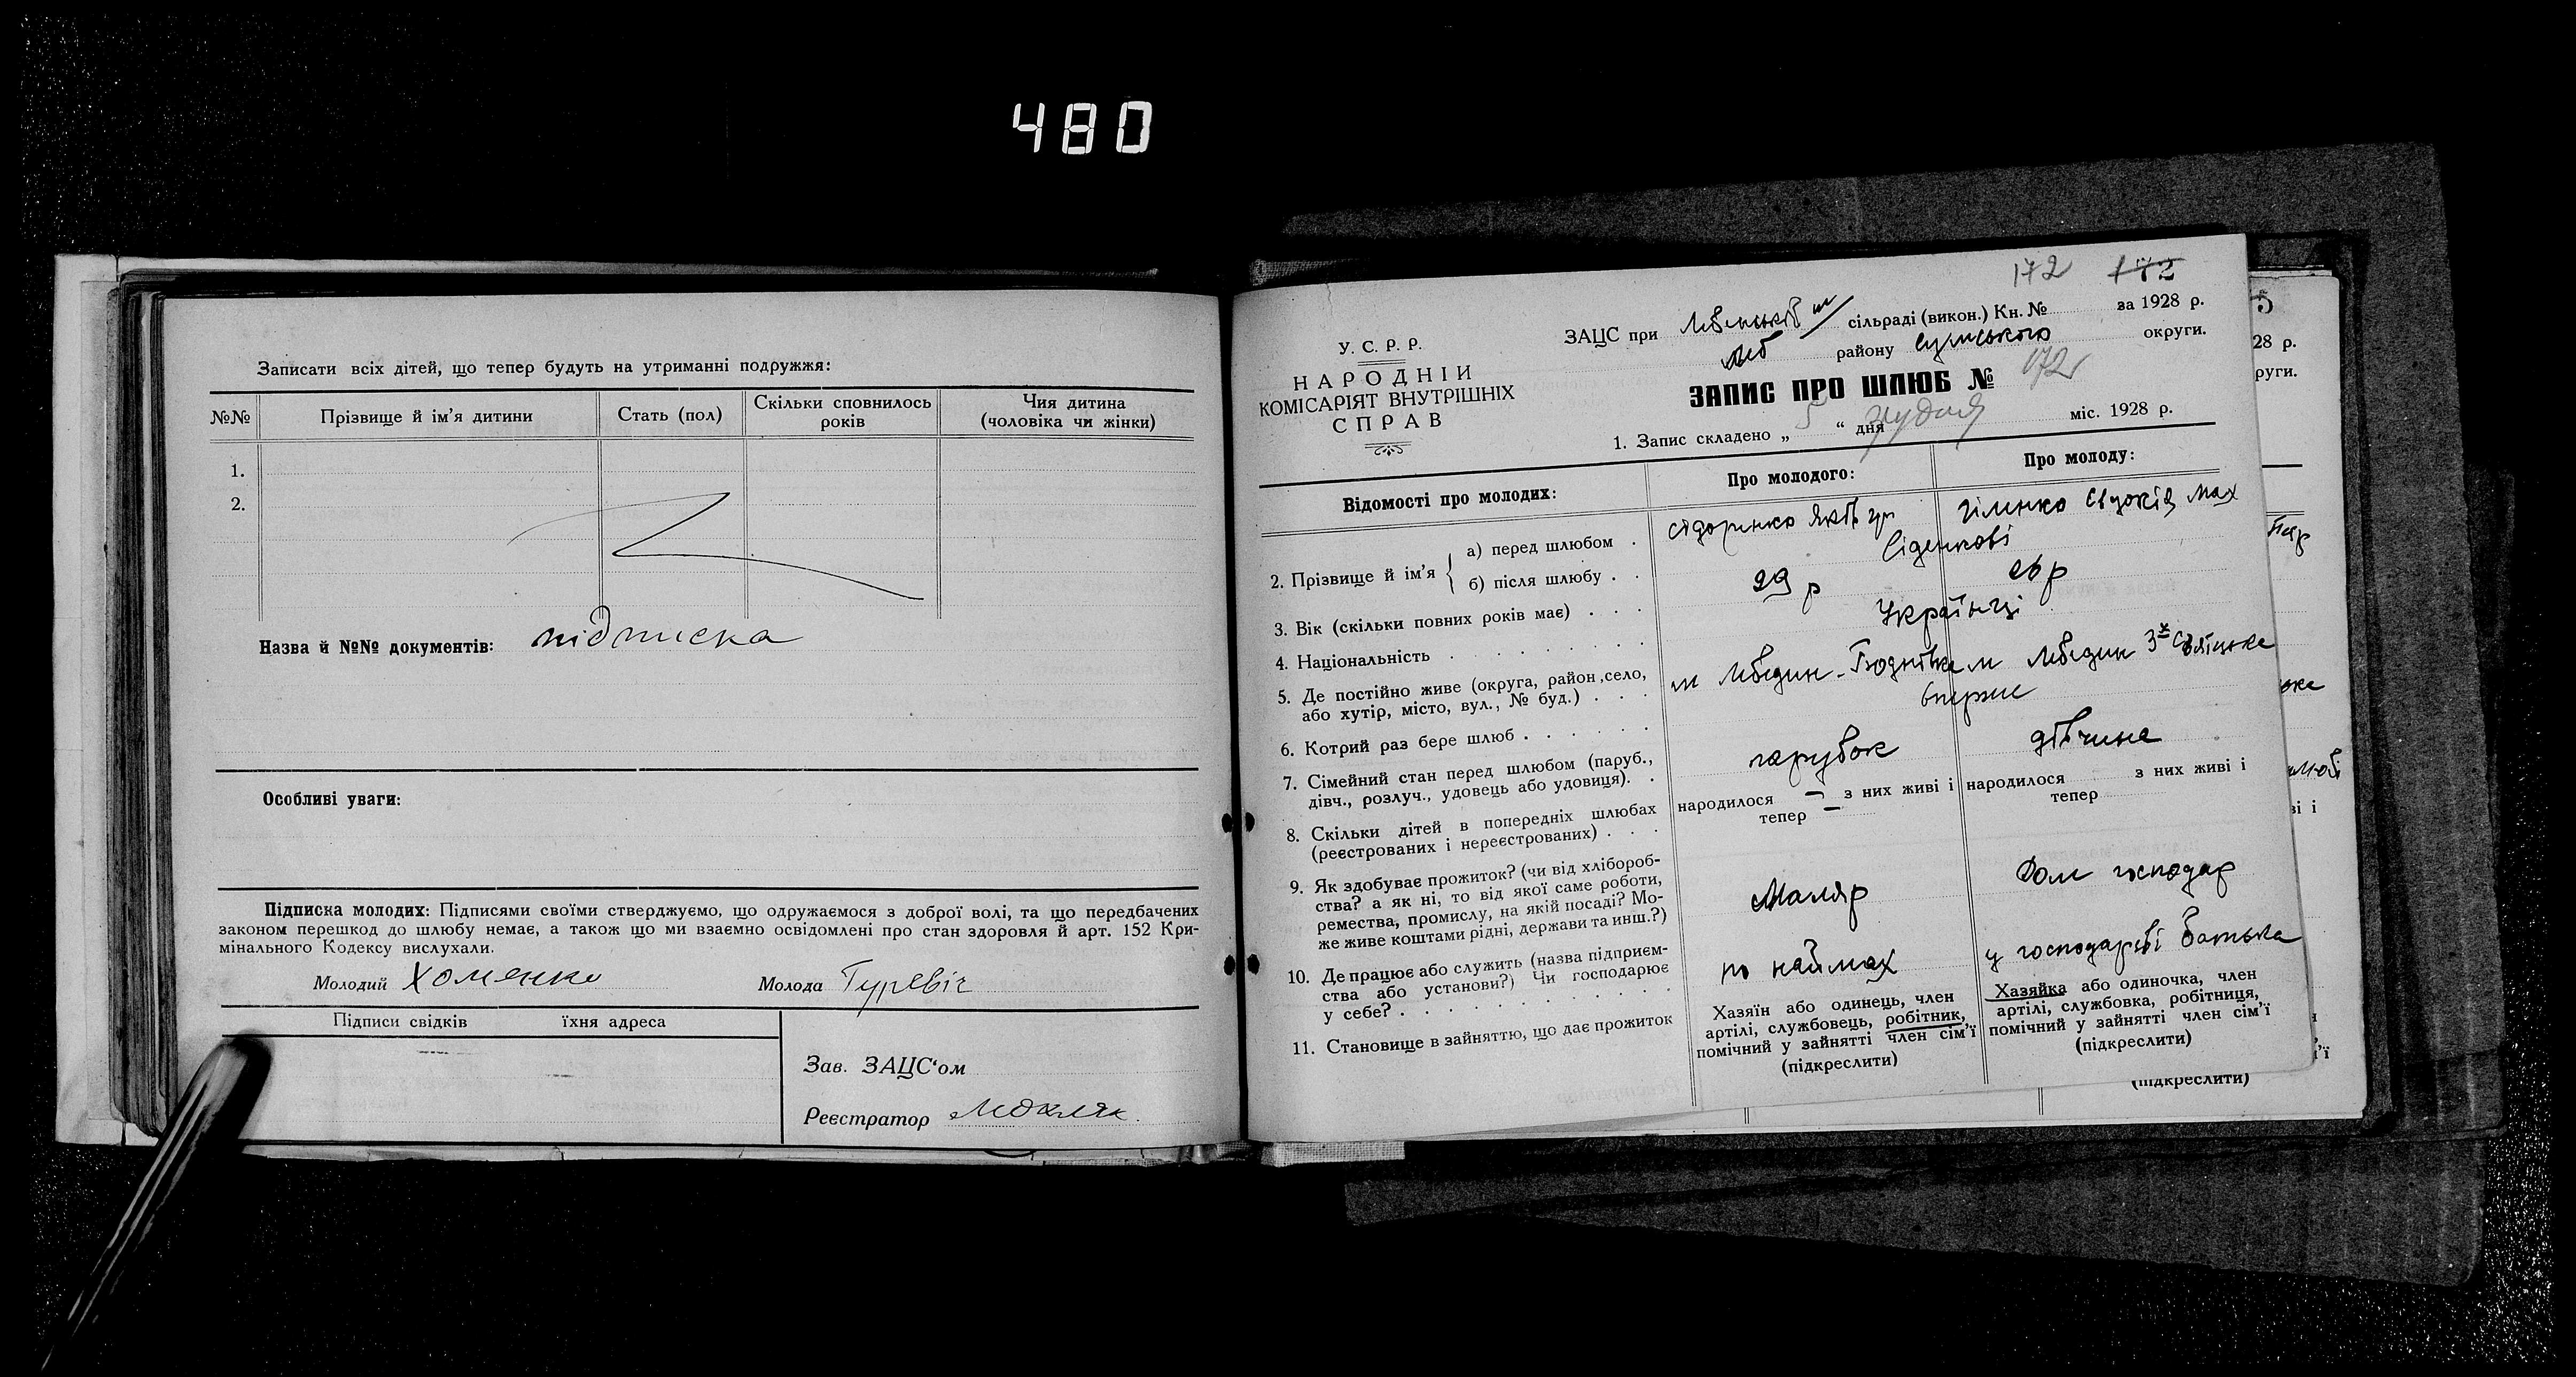 480
Записати всіх дітей, що тепер будуть на утриманні подружжя:
№№ Прізвище й ім'я дитини Стать (пол) Скільки сповнилось років Чия дитина (чоловіка чи жінки)
1.
2.
Назва й №№ документів: підписка
Особливі уваги:
Підписка молодих: Підписями своїми стверджуємо, що одружаємося з доброї волі, та що передбачених
законом перешкод до шлюбу немає, а також що ми взаємно освідомлені про стан здоровля й арт. 152 Кри-
мінального Кодексу вислухали.
Молодий Хоменко Молода Гуревіч
Підписи свідків їхня адреса
Зав. ЗАЦС'ом
Реєстратор
172 172
У. С. Р. Р.
НАРОДНІЙ
КОМІСАРІЯТ ВНУТРІШНІХ
СПРАВ
ЗАЦС при сільраді (викон.) Кн. № за 1928 р.
Леб району Сумського округи.
ЗАПИС ПРО ШЛЮБ № 172
1. Запис складено „ 5 “ дня грудня міс. 1928 р.
Відомості про молодих: Про молодого: Про молоду:
2. Прізвище й ім'я { а) перед шлюбом . Сідоринко Яків
б) після шлюбу . .
3. Вік (скільки повних років має) . . . 29 р 26 р
4. Національність . . . . . . . . . Українці
5. Де постійно живе (округа, район, село,
або хутір, місто, вул., № буд.) . . . м Лебедин м Лебедин
6. Котрий раз бере шлюб . . . . . . вперше
7. Сімейний стан перед шлюбом (паруб.,
дівч., розлуч., удовець або удовиця). . парубок дівчина
8. Скільки дітей в попередніх шлюбах
(реєстрованих і нереєстрованих) . . .
народилося — з них живі і
тепер —
народилося з них живі і
тепер
9. Як здобуває прожиток? (чи від хлібороб-
ства? а як ні, то від якої саме роботи,
ремества, промислу, на якій посаді? Мо-
же живе коштами рідні, держави та инш.?)
Маляр Дом господар
10. Де працює або служить (назва підприєм-
ства або установи?) Чи господарює
у себе? . . . . . . . . . .
по наймах у господарстві батька
11. Становище в зайняттю, що дає прожиток
Хазяїн або одинець, член
артілі, службовець, робітник,
помічний у зайнятті член сім'ї
(підкреслити)
Хазяйка або одиночка, член
артілі, службовка, робітниця,
помічний у зайнятті член сім'ї
(підкреслити)
5
28 р.
руги.
ві і
(підкреслити)